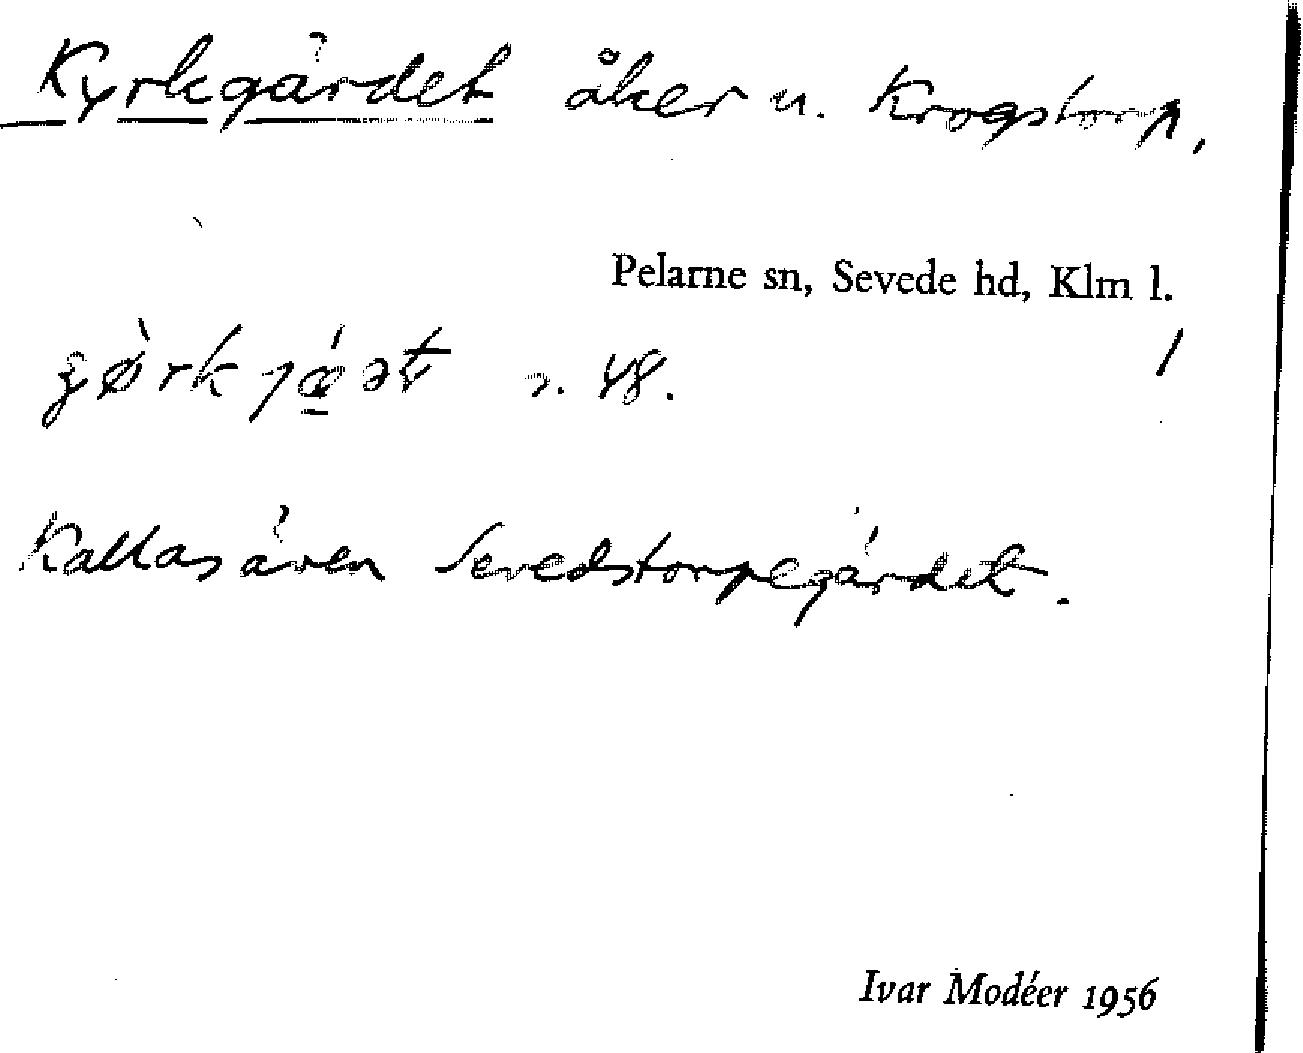 Kyrkgärdet åker u. Krogstorp,
Pelarne sn, Sevede hd, Klm l.
s. 48.
Kallas även Sevedstorpegärdet.
Ivar Modéer 1956